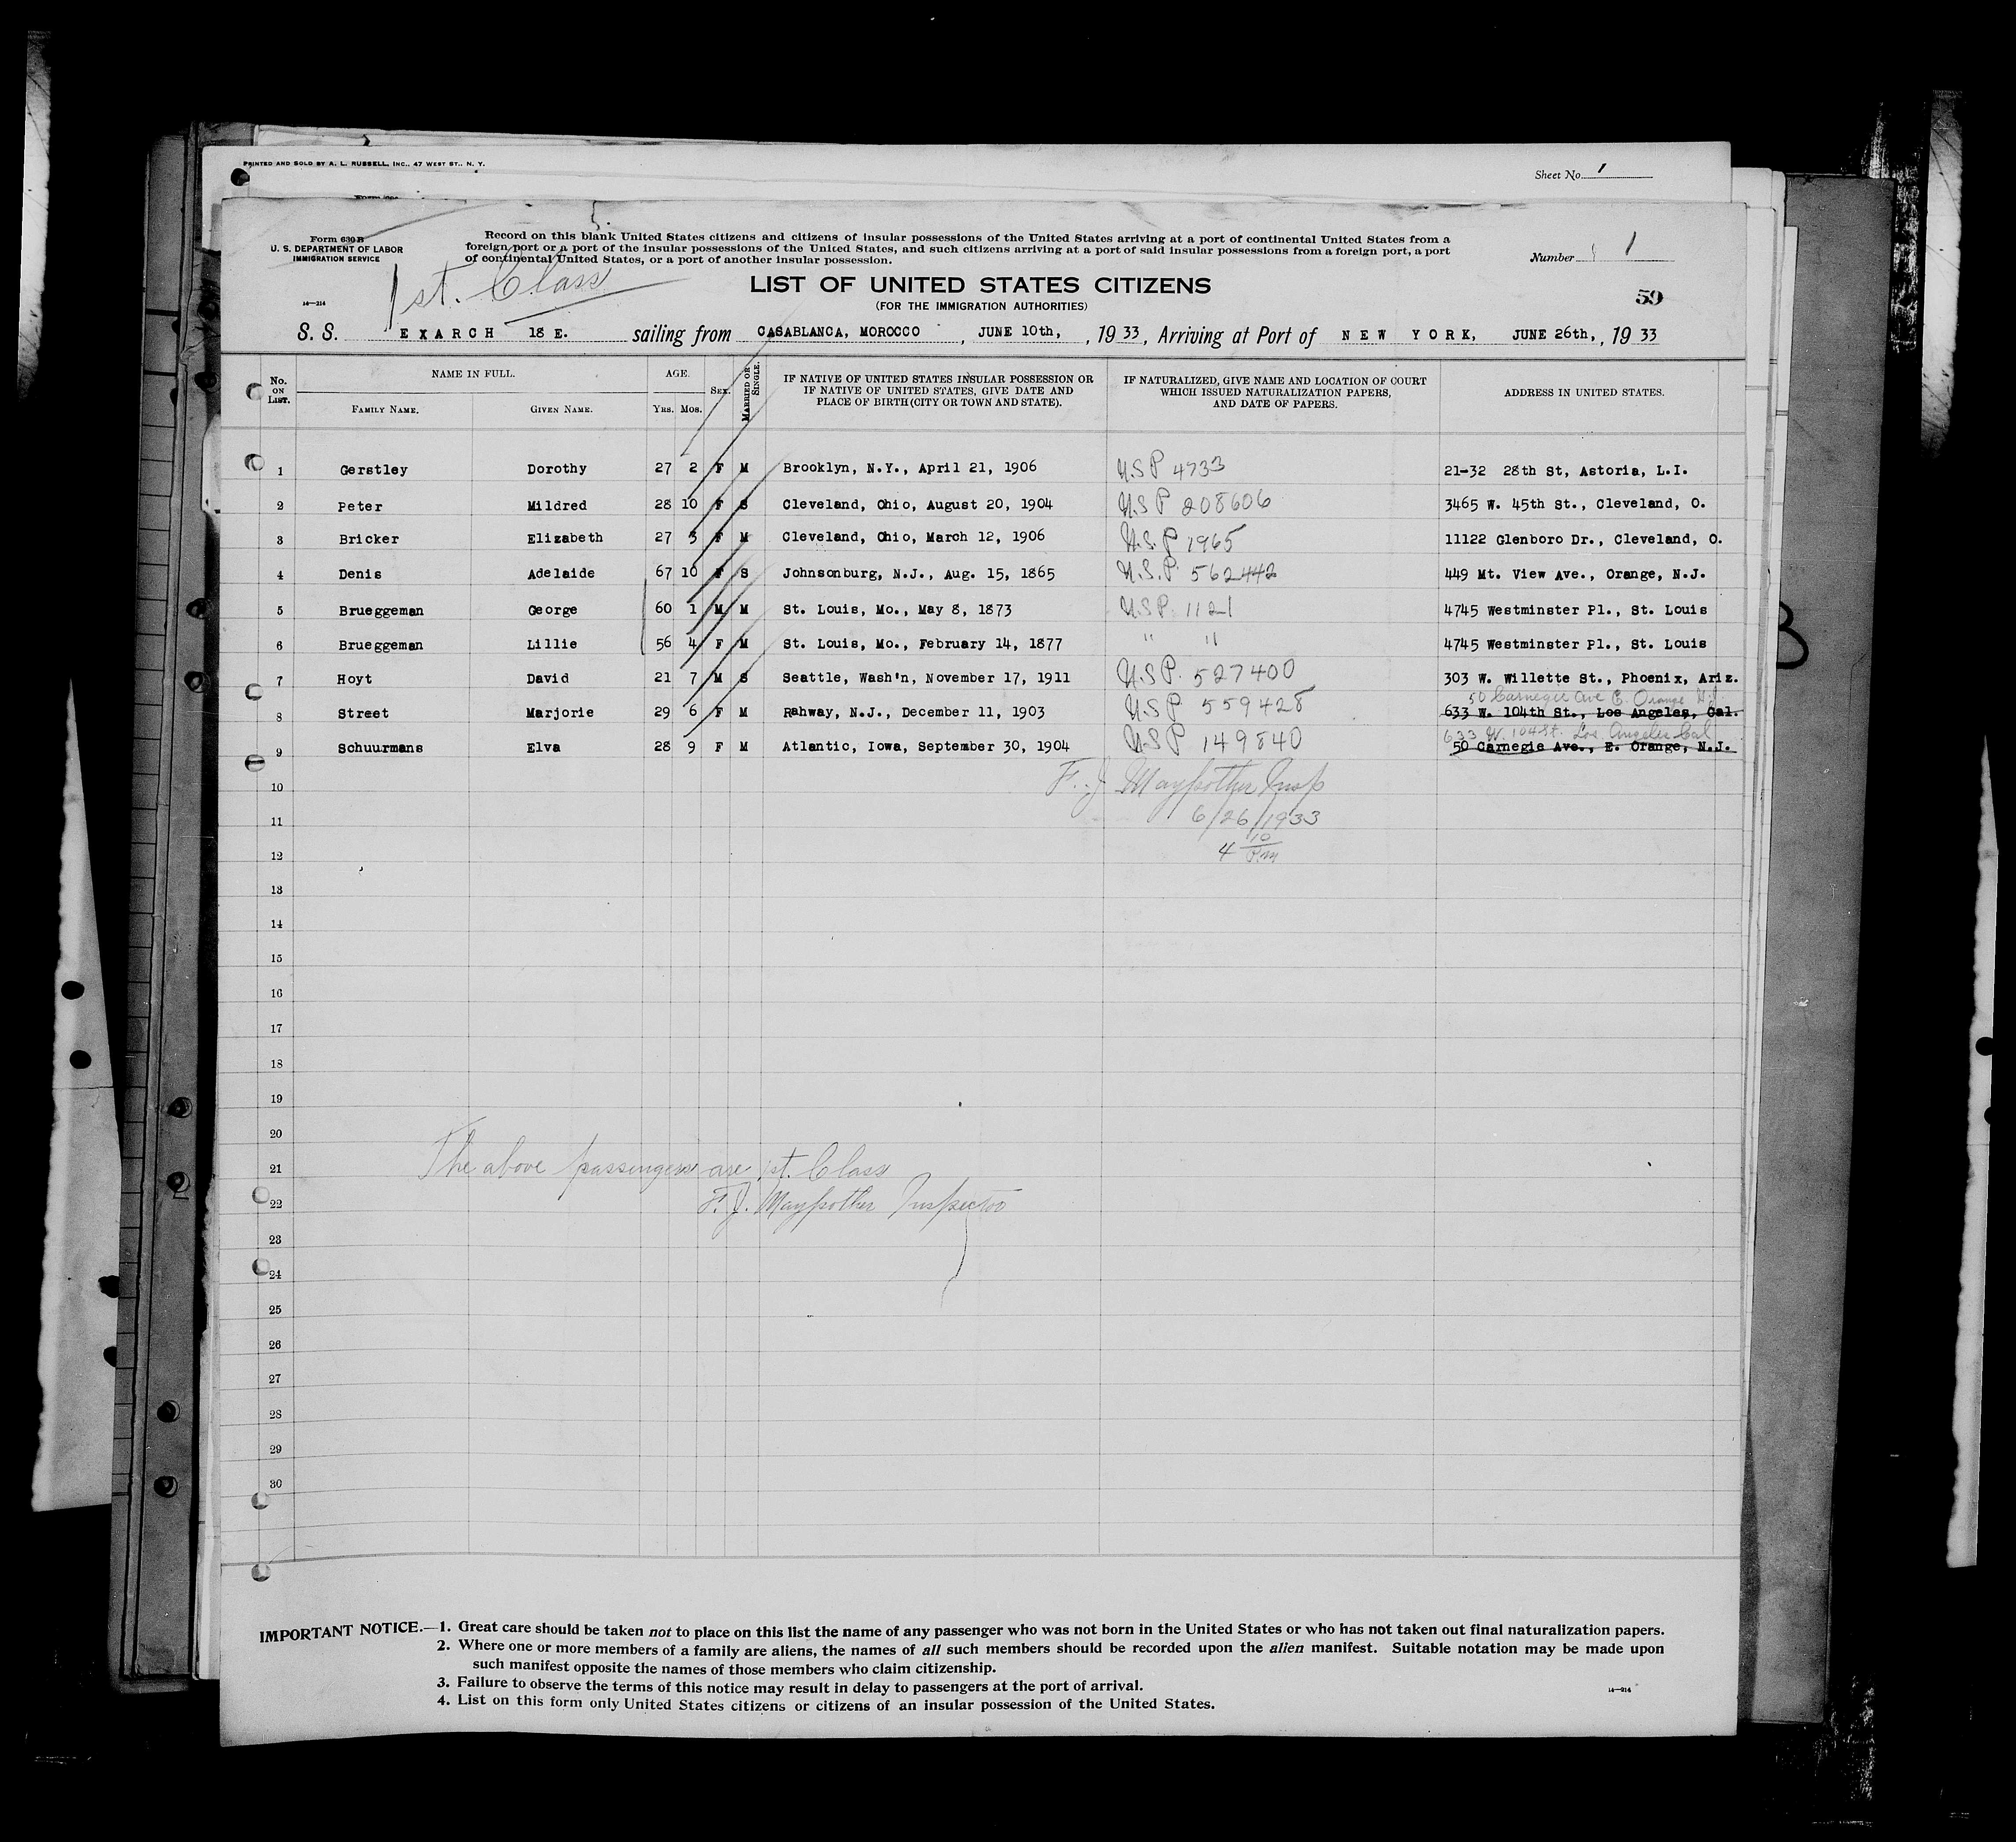 PRINTED AND SOLD BY A. L. RUSSELL, INC., 47 WEST ST., N. Y.
Sheet No. 1
Form 630 B
U. S. DEPARTMENT OF LABOR
IMMIGRATION SERVICE
14—214
1st. Class
Record on this blank United States citizens and citizens of insular possessions of the United States arriving at a port of continental United States from a
foreign port or a port of the insular possessions of the United States, and such citizens arriving at a port of said insular possessions from a foreign port, a port
of continental United States, or a port of another insular possession.
Number 1
LIST OF UNITED STATES CITIZENS
(FOR THE IMMIGRATION AUTHORITIES)
59
S. S. EXARCH 18 E. sailing from CASABLANCA, MOROCCO, JUNE 10th, , 1933, Arriving at Port of NEW YORK, JUNE 26th, , 1933
No. ON LIST. NAME IN FULL. FAMILY NAME. GIVEN NAME. AGE. YRS. MOS. SEX. MARRIED OR SINGLE. IF NATIVE OF UNITED STATES INSULAR POSSESSION OR IF NATIVE OF UNITED STATES, GIVE DATE AND PLACE OF BIRTH (CITY OR TOWN AND STATE). IF NATURALIZED, GIVE NAME AND LOCATION OF COURT WHICH ISSUED NATURALIZATION PAPERS, AND DATE OF PAPERS. ADDRESS IN UNITED STATES.
1 Gerstley Dorothy 27 2 F M Brooklyn, N.Y., April 21, 1906 U.S.P 4733 21-32 28th St, Astoria, L.I.
2 Peter Mildred 28 10 F S Cleveland, Ohio, August 20, 1904 U.S.P 208606 3465 W. 45th St., Cleveland, O.
3 Bricker Elizabeth 27 3 F M Cleveland, Ohio, March 12, 1906 U.S.P 1965 11122 Glenboro Dr., Cleveland, O.
4 Denis Adelaide 67 10 F S Johnsonburg, N.J., Aug. 15, 1865 U.S.P. 562442 449 Mt. View Ave., Orange, N.J.
5 Brueggeman George 60 1 M M St. Louis, Mo., May 8, 1873 U.S.P. 1121 4745 Westminster Pl., St. Louis
6 Brueggeman Lillie 56 4 F M St. Louis, Mo., February 14, 1877 " " 4745 Westminster Pl., St. Louis
7 Hoyt David 21 7 M S Seattle, Wash'n, November 17, 1911 U.S.P. 527400 303 W. Willette St., Phoenix, Ariz.
50 Carnegie Ave E. Orange N.J.
8 Street Marjorie 29 6 F M Rahway, N.J., December 11, 1903 U.S.P 559428 633 W. 104th St., Los Angeles, Cal.
633 W. 104 St. Los Angeles Cal
9 Schuurmans Elva 28 9 F M Atlantic, Iowa, September 30, 1904 U.S.P 149840 50 Carnegie Ave., E. Orange, N.J.
F. J. Maypother Insp
10
6/26/1933
11
4 10 P.m
12
13
14
15
16
17
18
19
20
The above passengers are 1st. Class
21
F. J. Maypother Inspector
22
23
24
25
26
27
28
29
30
IMPORTANT NOTICE.—1. Great care should be taken not to place on this list the name of any passenger who was not born in the United States or who has not taken out final naturalization papers.
2. Where one or more members of a family are aliens, the names of all such members should be recorded upon the alien manifest. Suitable notation may be made upon
such manifest opposite the names of those members who claim citizenship.
3. Failure to observe the terms of this notice may result in delay to passengers at the port of arrival.
4. List on this form only United States citizens or citizens of an insular possession of the United States.
14—214